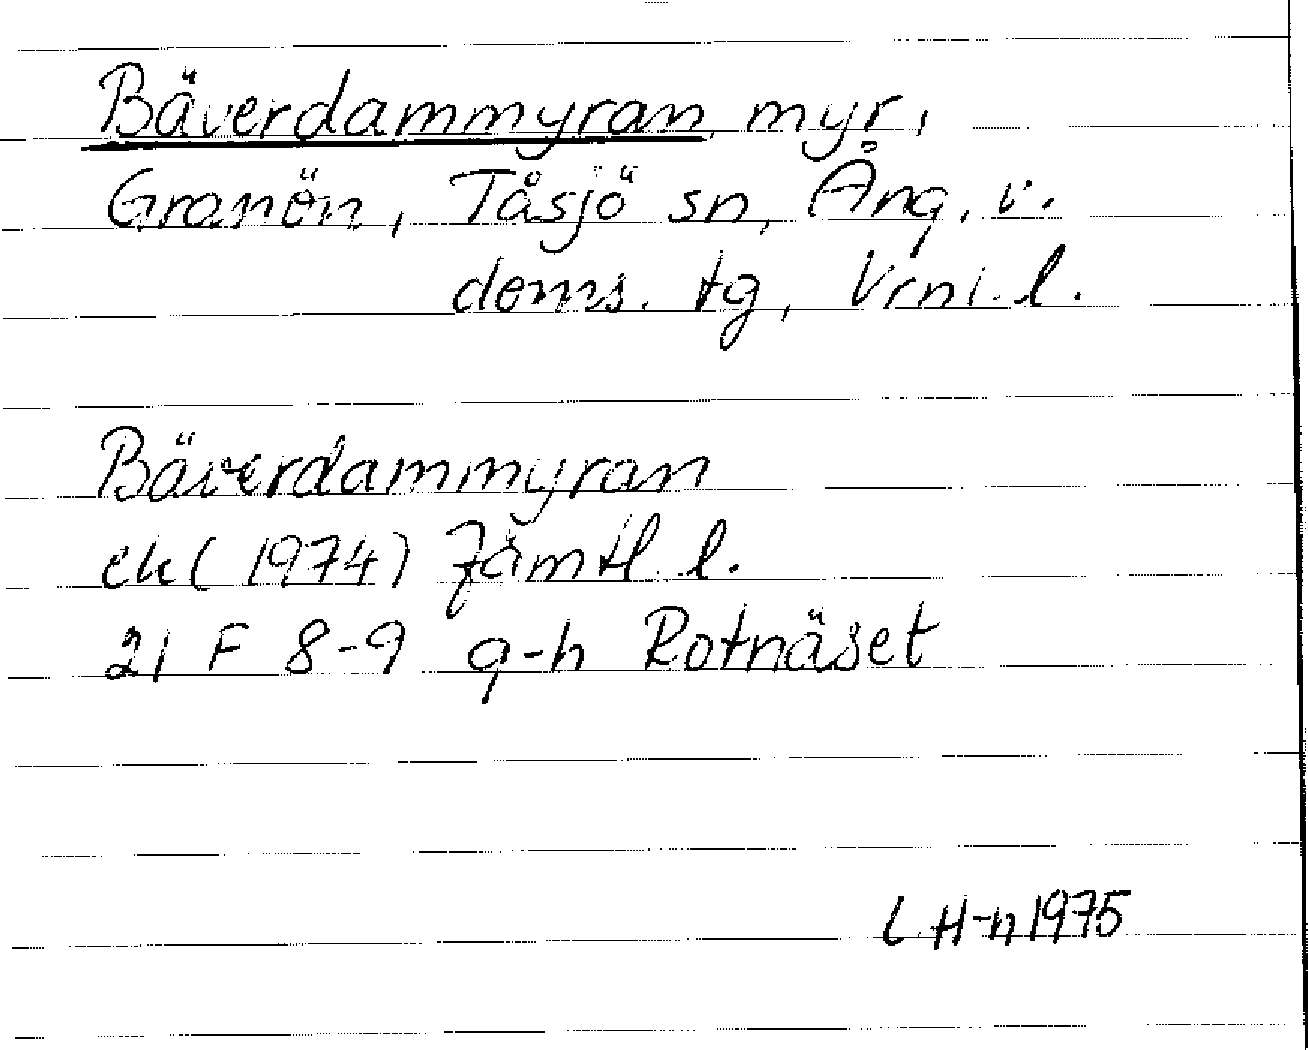 Bäverdammyran, myr,
Granön, Tåsjö sn, Ång. v.
doms. tg, Vrnl. l.
Bäverdammyran
ek (1974) Jämtl. l.
21 F 8-9 g-h Rotnäset
L H-n 1975